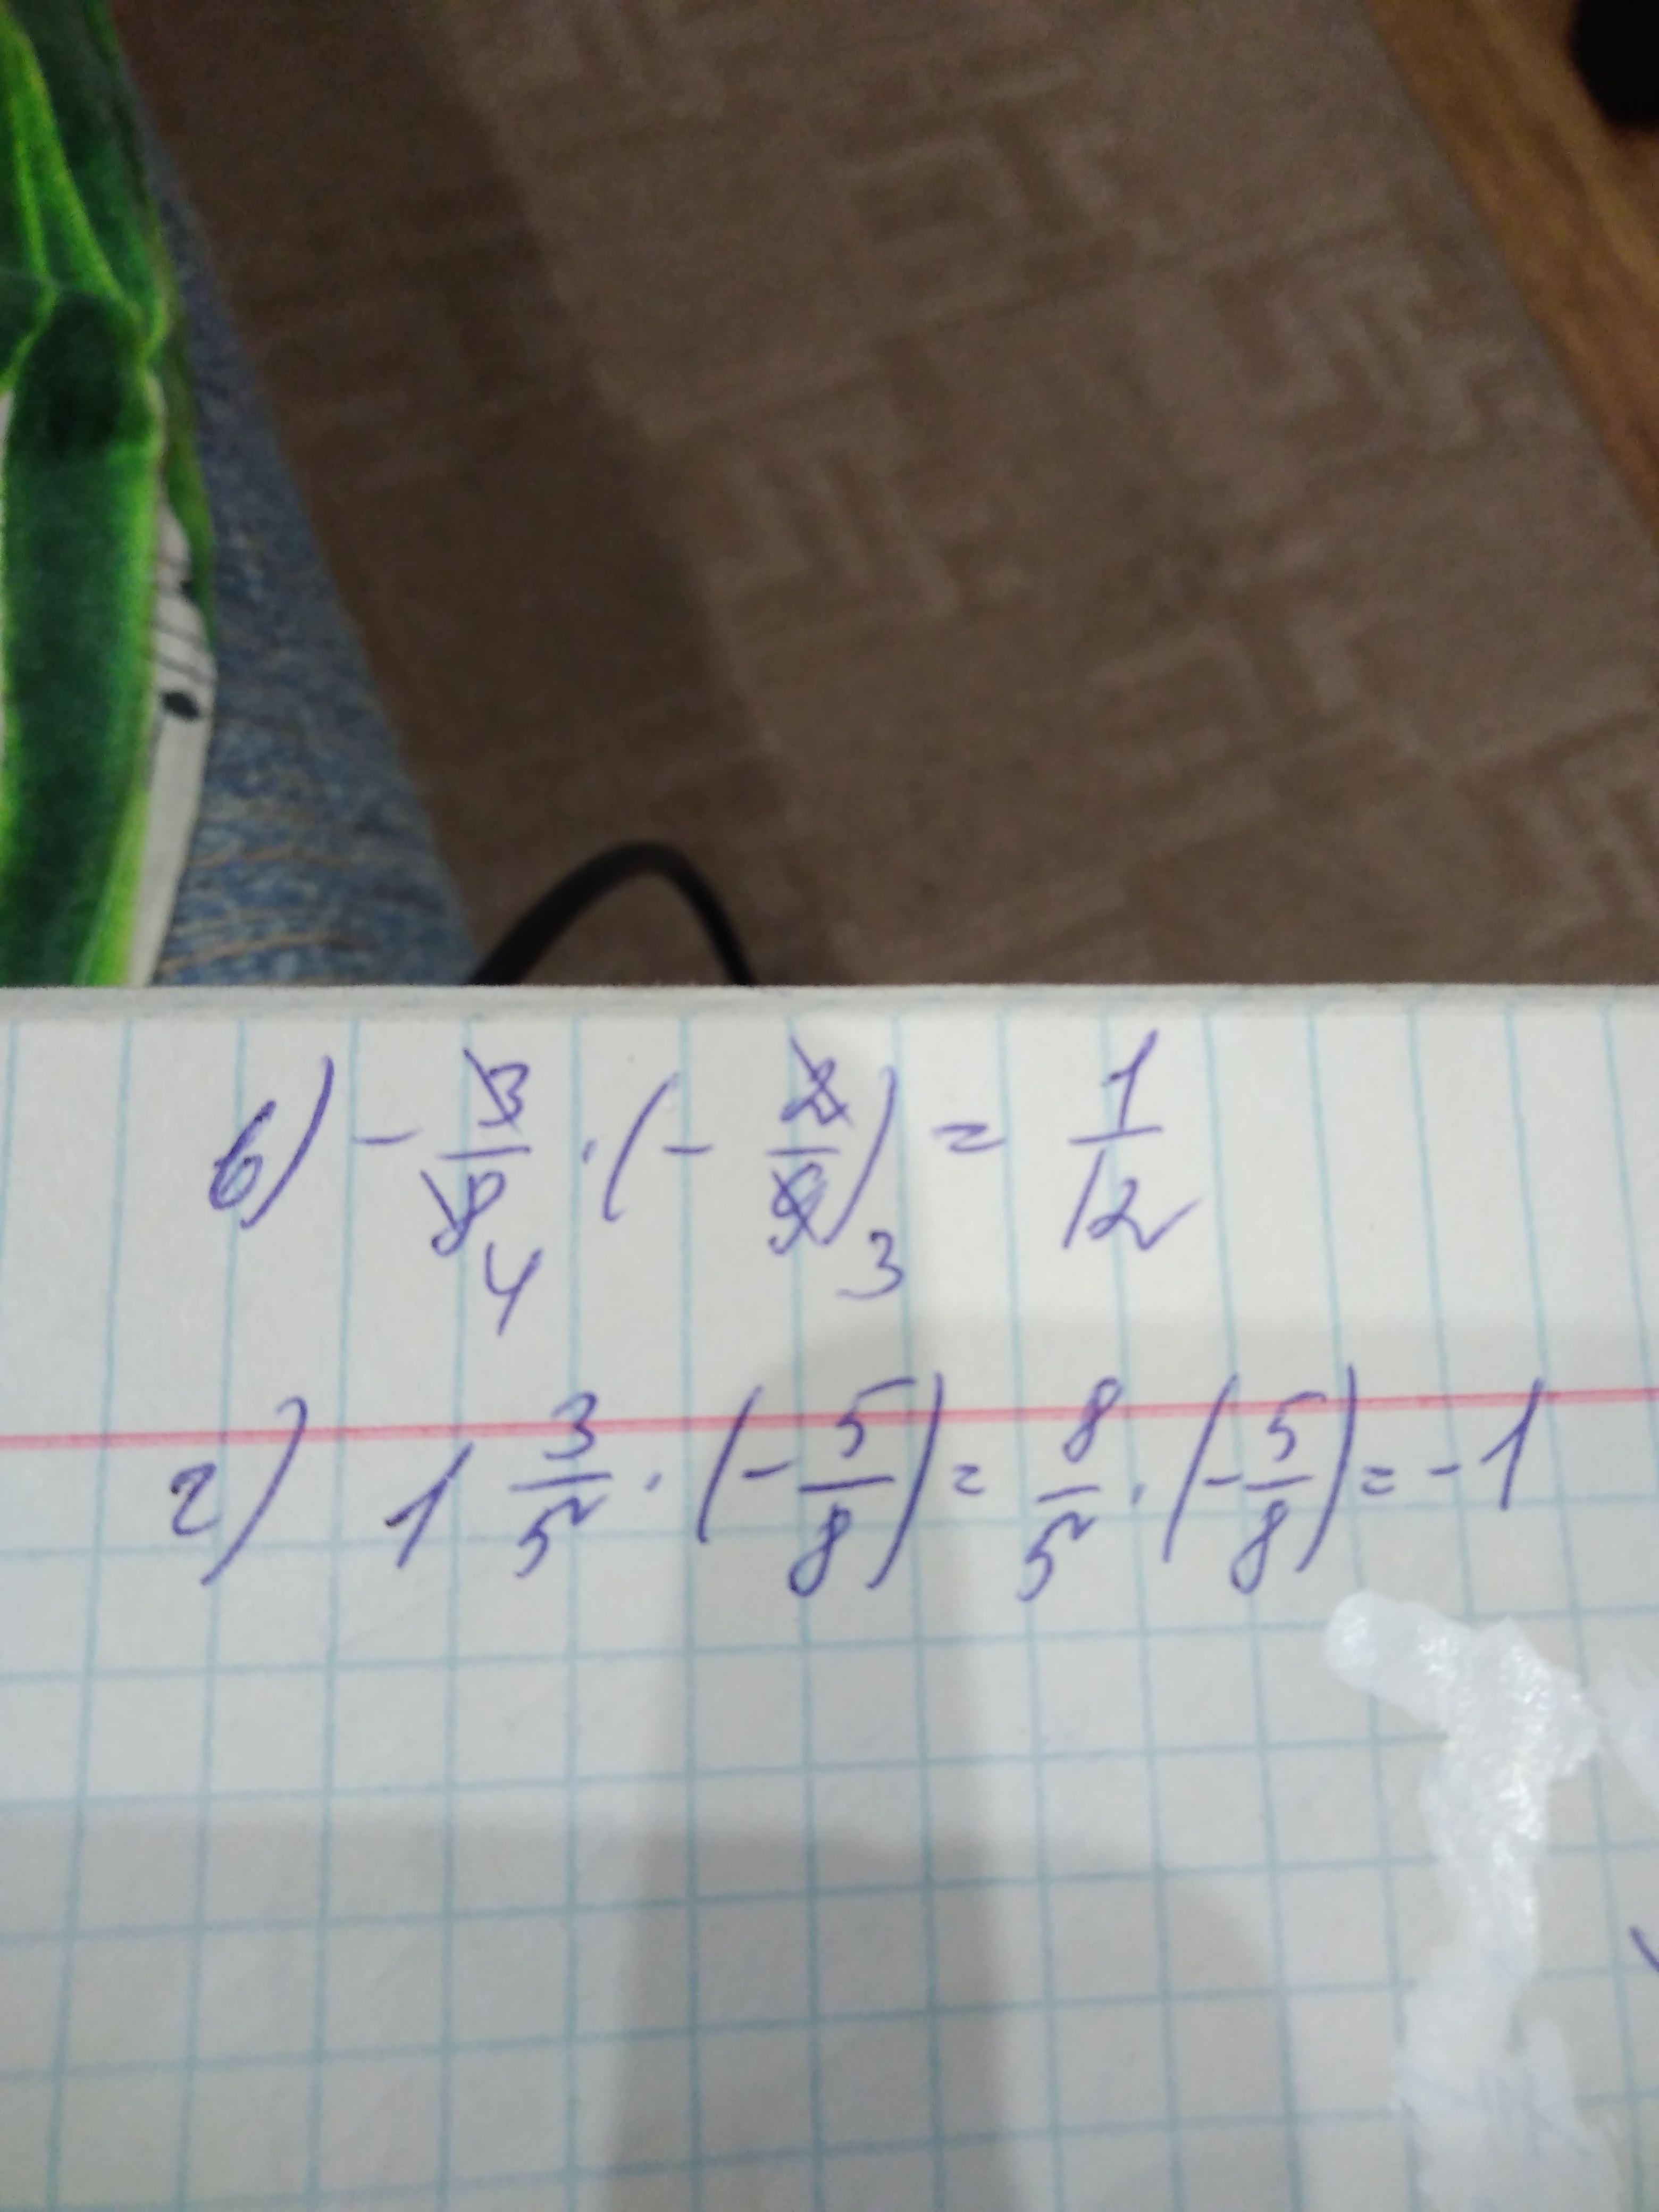 в) - 3/8 4 · (- 2/9) 3 = 1/12
г) 1 3/5 · (- 5/8) = 8/5 · (- 5/8) = -1